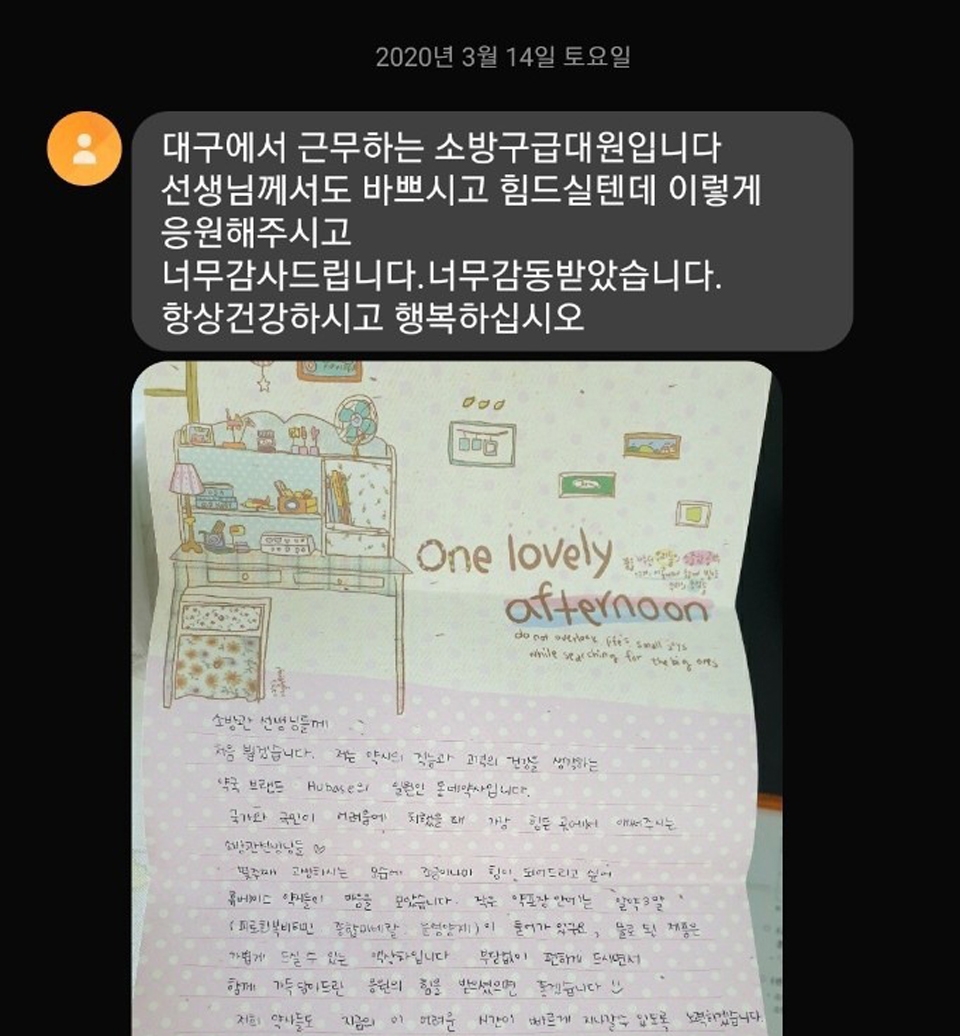 2020년 3월 14일 토요일
대구에서 근무하는 소방구급대원입니다
선생님께서도 바쁘시고 힘드실텐데 이렇게
응원해주시고
너무감사드립니다.너무감동받았습니다.
항상건강하시고 행복하십시오
One lovely
afternoon
do not overlook life's small joys
while searching for the big ones
소방관 선생님들께
처음 뵙겠습니다. 저는 약사의 직능과 고객의 건강을 생각하는
약국 브랜드 Hubase의 일원인 동네약사입니다.
국가와 국민이 어려움에 처했을 때 가장 힘든 곳에서 애써주시는
소방관선생님들 ♡
몇주째 고생하시는 모습에 조금이나마 힘이 되어드리고 싶어
휴베이스 약사들이 마음을 모았습니다. 작은 약포장 안에는 알약3알
(피로회복비타민 종합미네랄 눈영양제)이 들어가 있구요, 물로 된 제품은
가볍게 드실 수 있는 액상차입니다 부담없이 편하게 드시면서
함께 가득담아드린 응원의 힘을 받으셨으면 좋겠습니다
저희 약사들도 지금의 이 어려운 시간이 빠르게 지나갈수 있도록 노력하겠습니다.